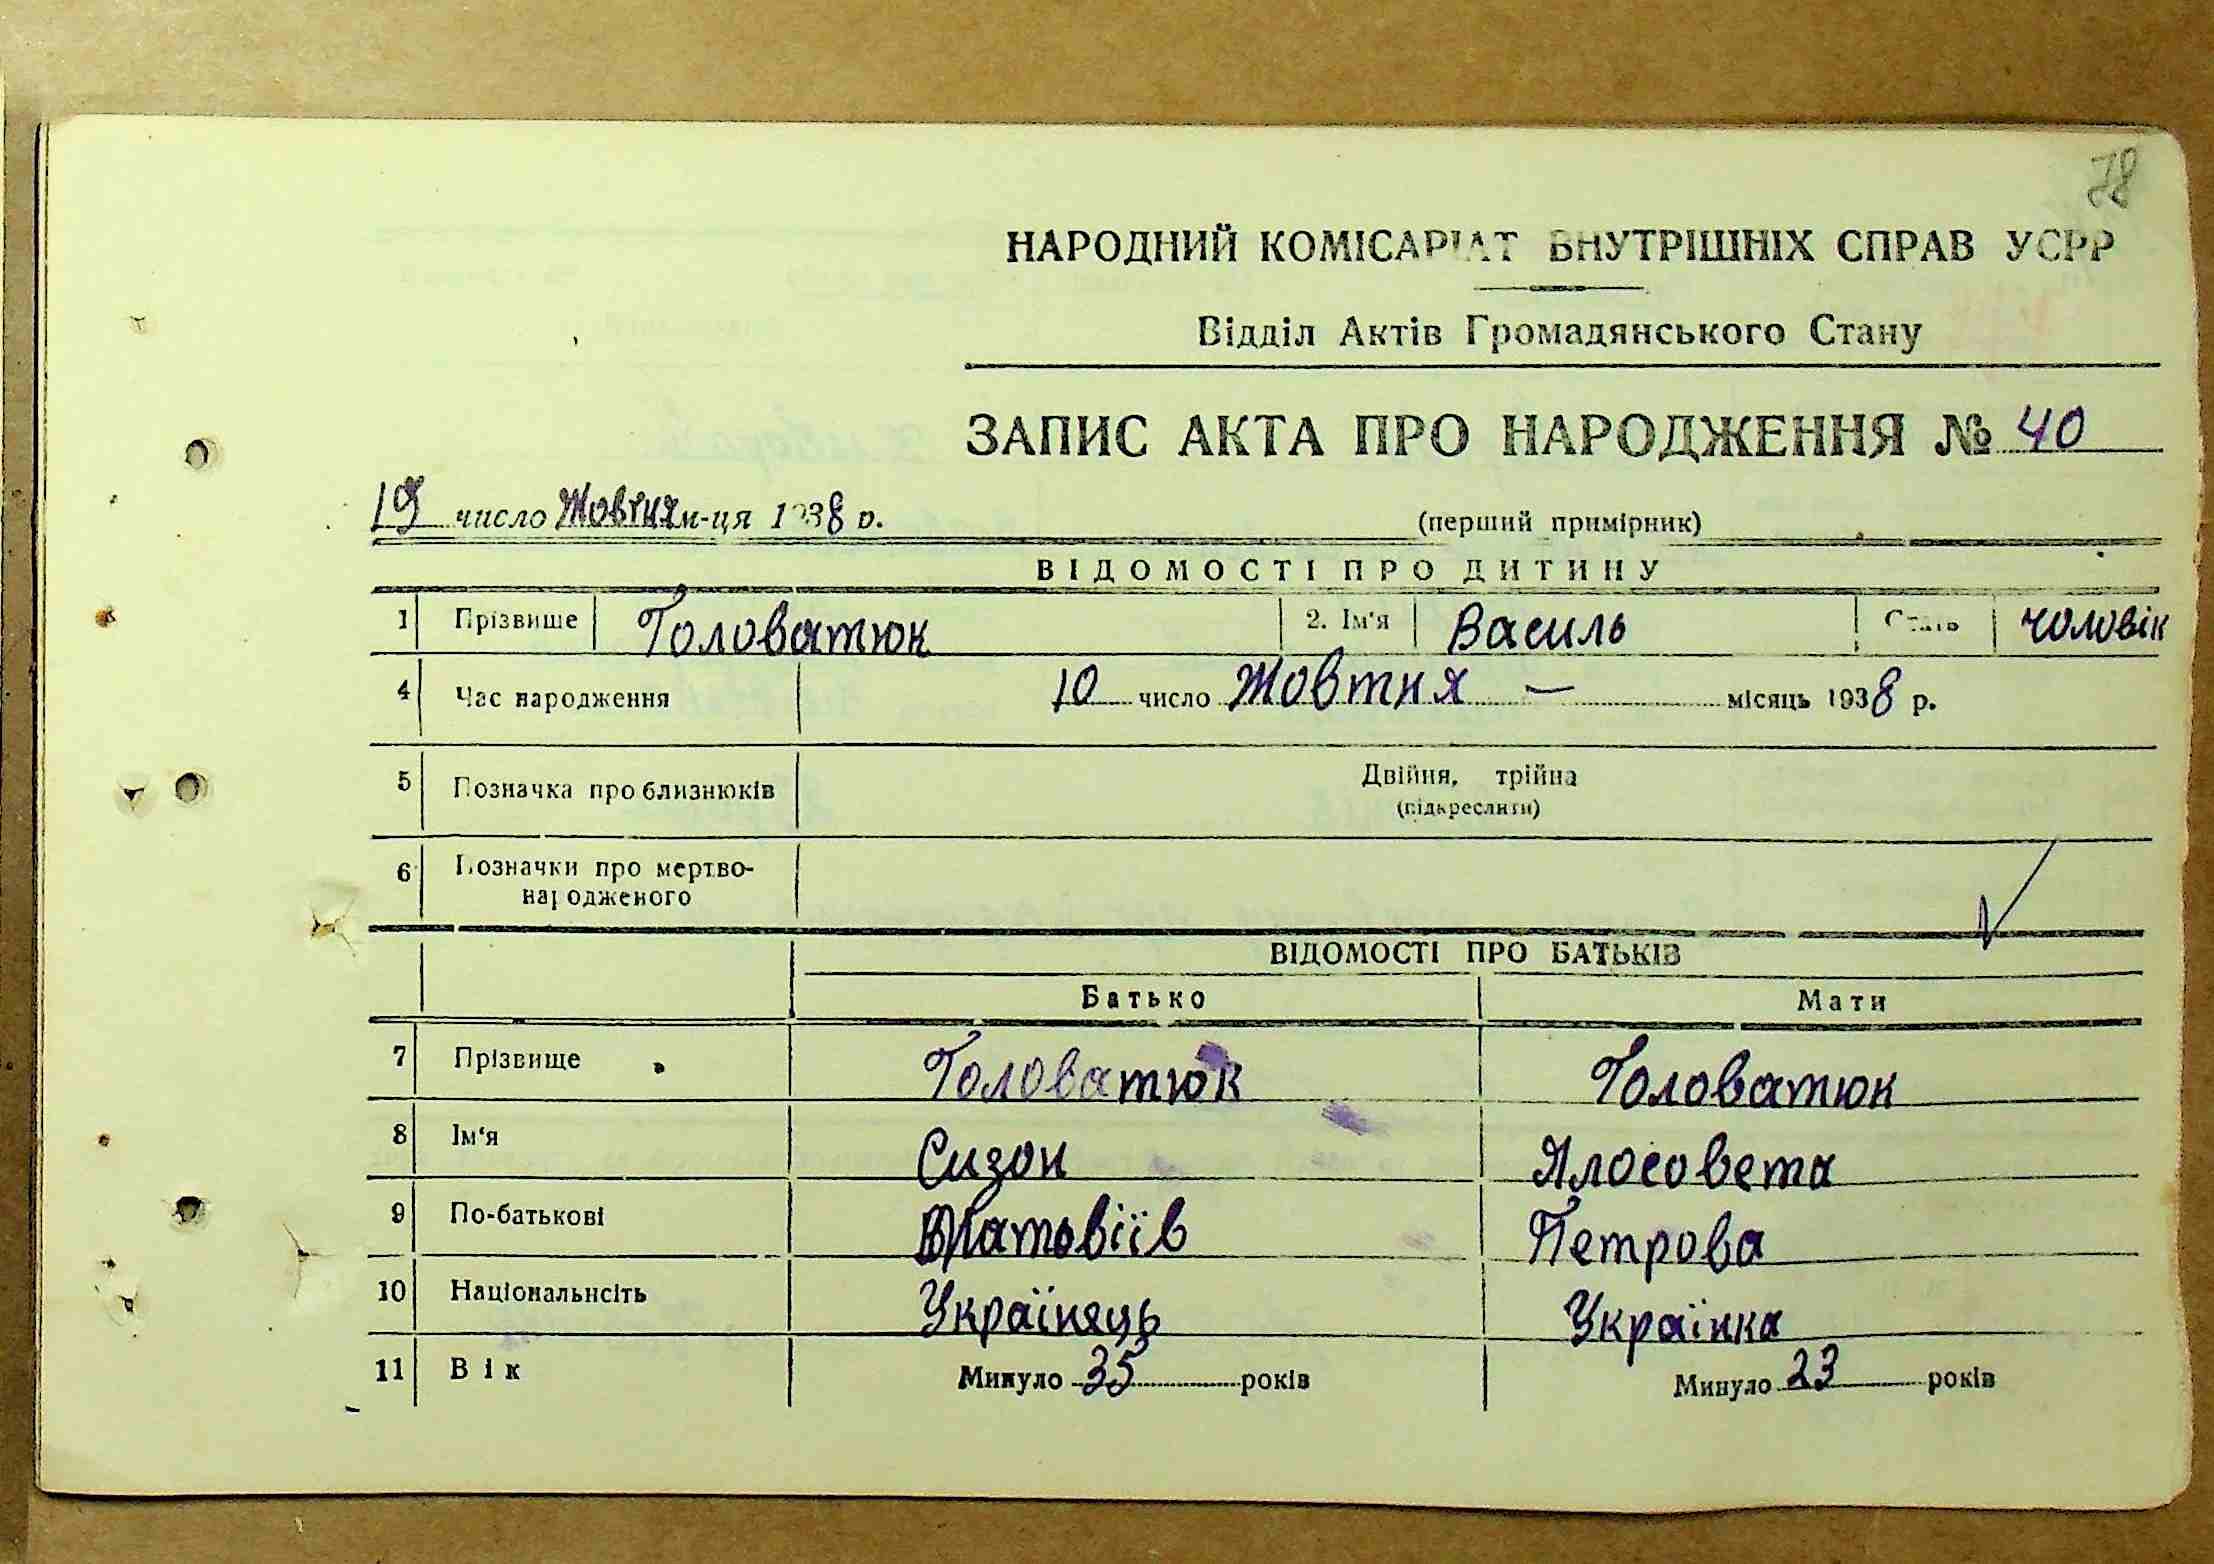 78
НАРОДНИЙ КОМІСАРІАТ ВНУТРІШНІХ СПРАВ УСРР
Відділ Актів Громадянського Стану
ЗАПИС АКТА ПРО НАРОДЖЕННЯ № 40
19 число Жовтня м-ця 1938 р.
(перший примірник)
ВІДОМОСТІ ПРО ДИТИНУ
1 Прізвище Головатюк 2. Ім'я Василь Стать чоловік
4 Час народження 10 число Жовтня — місяць 1938 р.
5 Позначка про близнюків Двійня, трійна
(підкреслити)
6 Позначки про мертво-
народженого
ВІДОМОСТІ ПРО БАТЬКІВ
Батько Мати
7 Прізвище Головатюк Головатюк
8 Ім'я Сизон Ялосовета
9 По-батькові Матовіїв Петрова
10 Національнсіть Україняць Українка
11 Вік Минуло 35 років Минуло 23 років